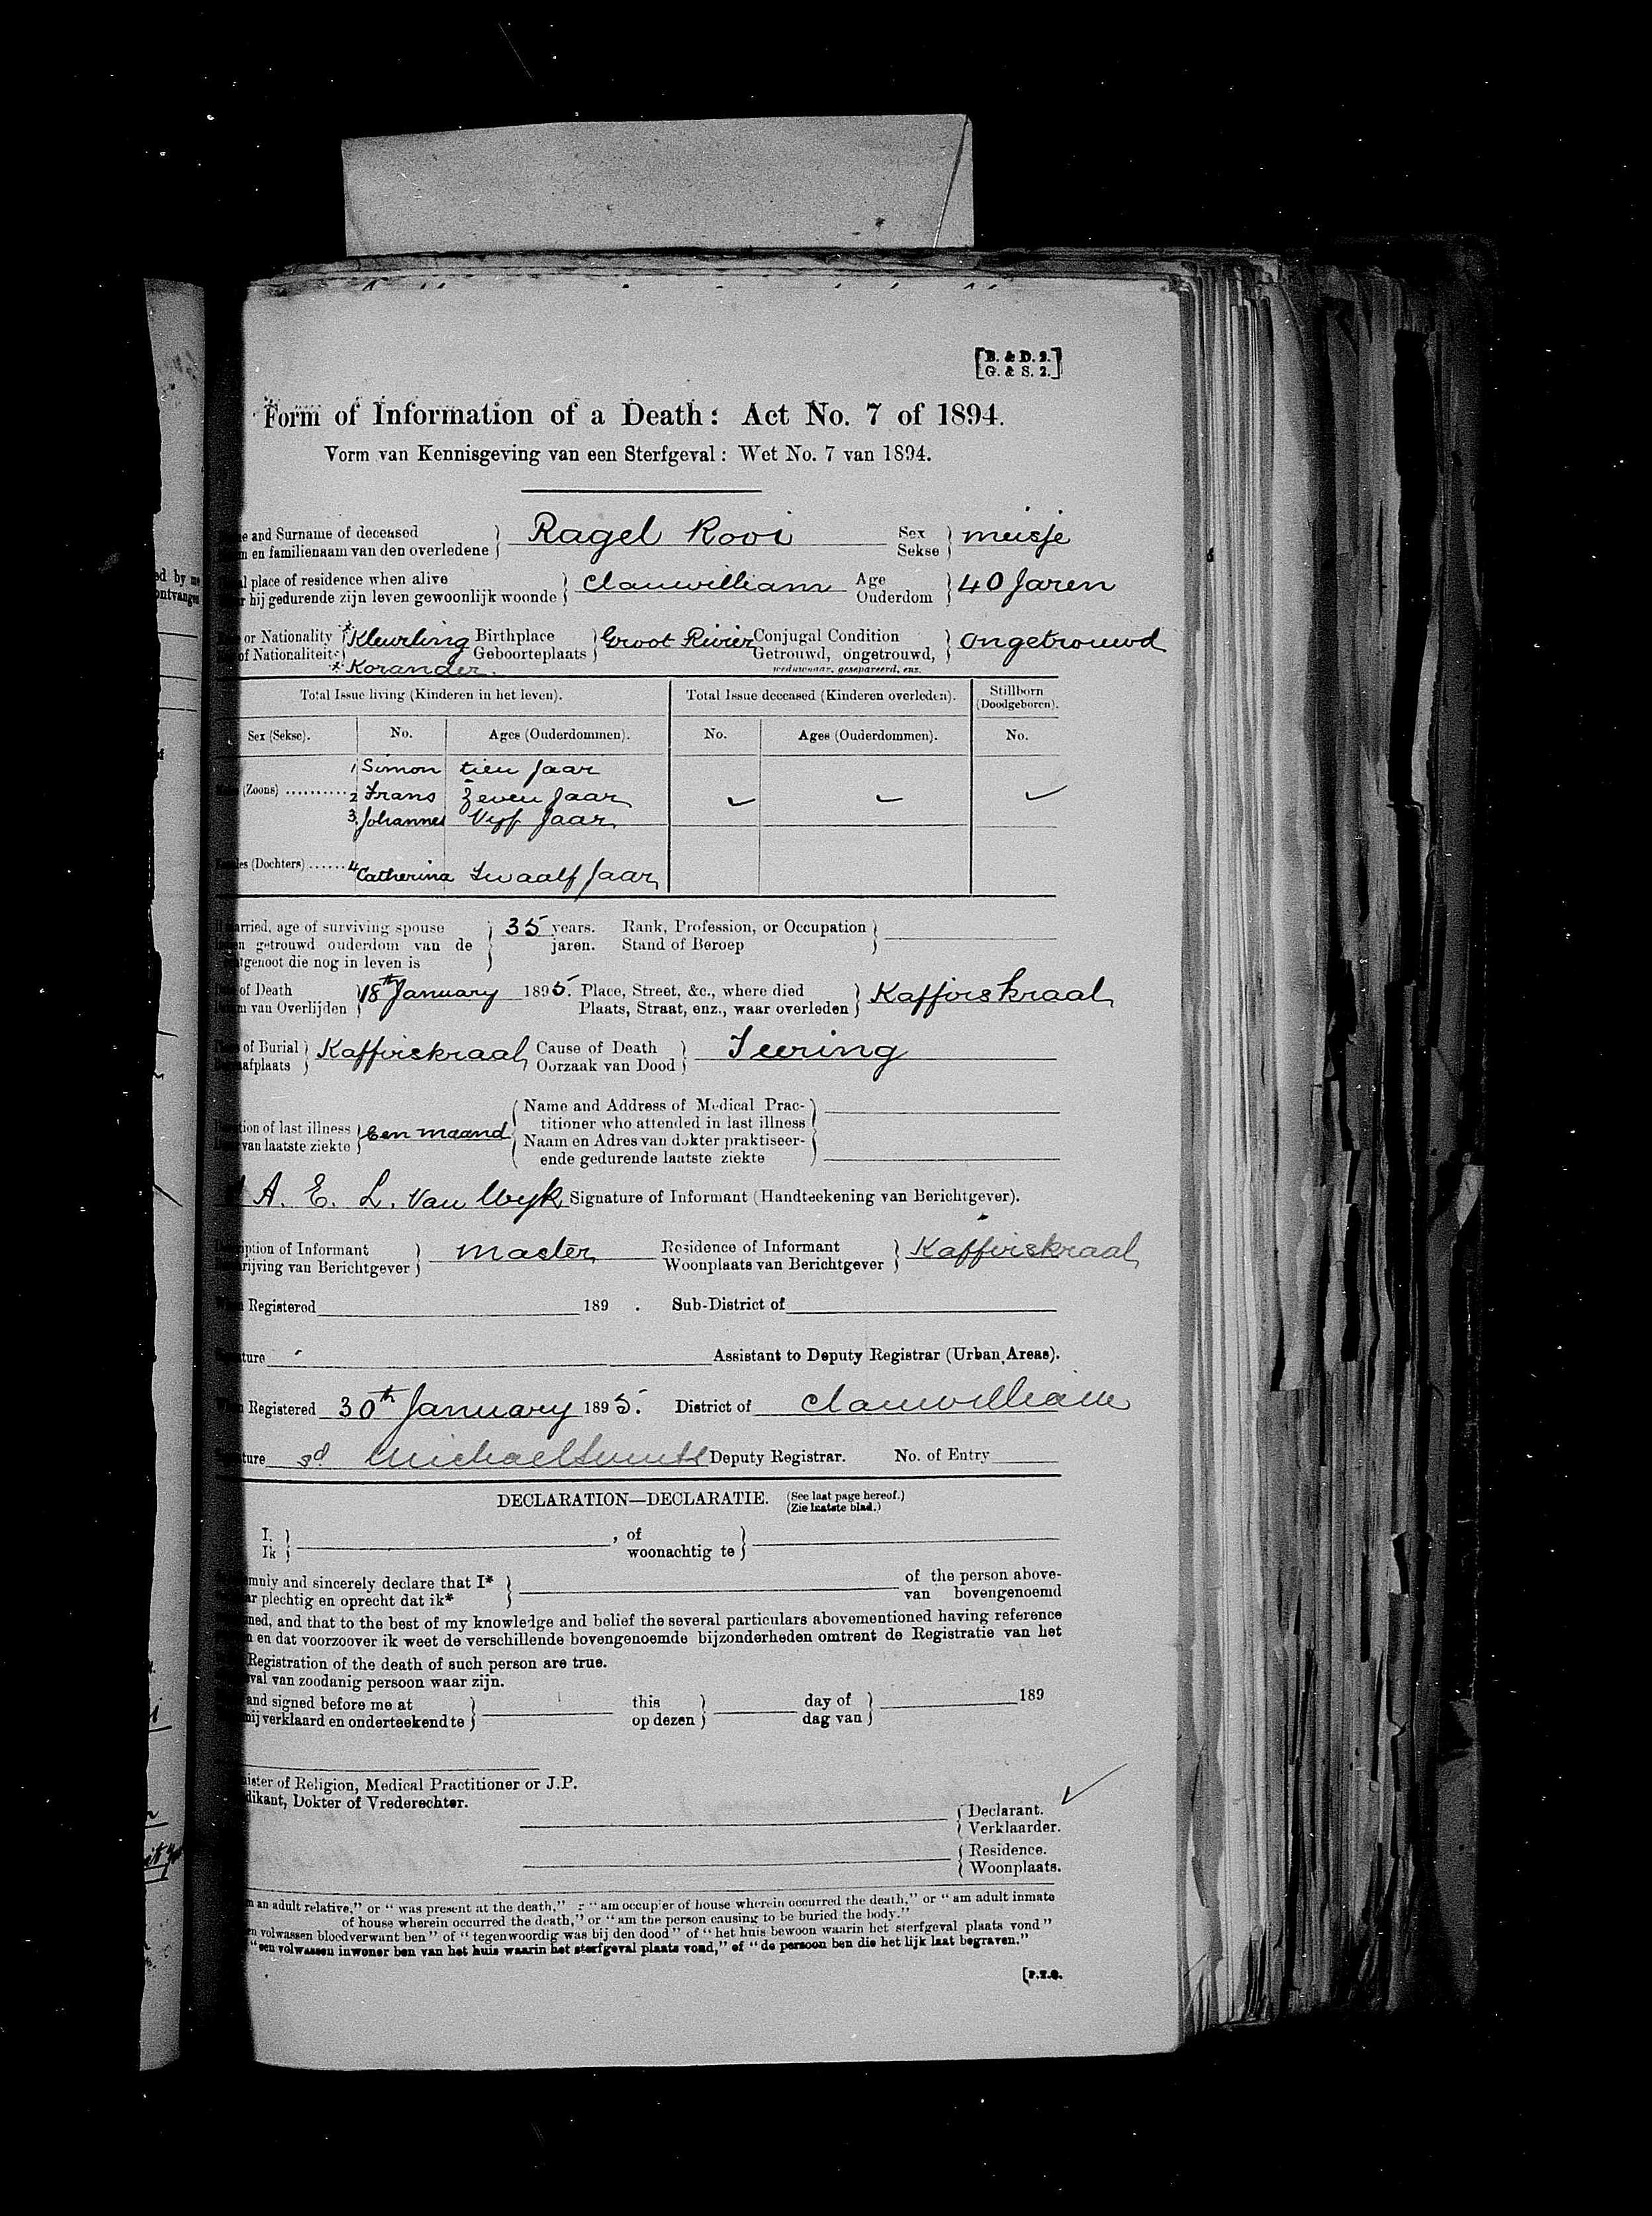 [B. & D. 2.
G. & S. 2.]
Form of Information of a Death: Act No. 7 of 1894.
Vorm van Kennisgeving van een Sterfgeval: Wet No. 7 van 1894.
and Surname of deceased Ragel Rooi Sex meisje
en familienaam van den overledene Sekse
place of residence when alive Clanwilliam Age 40 Jaren
hij gedurende zijn leven gewoonlijk woonde Ouderdom
or Nationality *Kleurling Birthplace Groot Rivier Conjugal Condition ongetrouwd
of Nationaliteit Geboorteplaats Getrouwd, ongetrouwd,
* Korander. weduwnaar, gesepareerd, enz.
Total Issue living (Kinderen in het leven). Total Issue deceased (Kinderen overleden). Stillborn (Doodgeboren).
Sex (Sekse). No. Ages (Ouderdommen). No. Ages (Ouderdommen). No.
1 Simon tien Jaar
(Zoons) 2 Frans Zeven Jaar
3. Johannes Vyf Jaar
(Dochters) 4 Catherina Twaalf Jaar
married, age of surviving spouse 35 years. Rank, Profession, or Occupation
getrouwd ouderdom van de jaren. Stand of Beroep
die nog in leven is
of Death 18th January 1895. Place, Street, &c., where died Kafferskraal
van Overlijden Plaats, Straat, enz., waar overleden
of Burial Kafferskraal Cause of Death Teering
Oorzaak van Dood
Name and Address of Medical Prac-
of last illness Een maand titioner who attended in last illness
van laatste ziekte Naam en Adres van dokter praktiseer-
ende gedurende laatste ziekte
A. E. L. Van Wyk Signature of Informant (Handteekening van Berichtgever).
of Informant master Residence of Informant Kafferskraal
van Berichtgever Woonplaats van Berichtgever
Registered 189 . Sub-District of
Assistant to Deputy Registrar (Urban Areas).
Registered 30th January 1895. District of Clanwilliam
sd. Deputy Registrar. No. of Entry
DECLARATION—DECLARATIE. (See last page hereof.)
(Zie laatste blad.)
I. , of
Ik woonachtig te
and sincerely declare that I* of the person above-
plechtig en oprecht dat ik* van bovengenoemd
and that to the best of my knowledge and belief the several particulars abovementioned having reference
en dat voorzoover ik weet de verschillende bovengenoemde bijzonderheden omtrent de Registratie van het
Registration of the death of such person are true.
van zoodanig persoon waar zijn.
and signed before me at this day of 189
verklaard en onderteekend te op dezen dag van
of Religion, Medical Practitioner or J.P.
Dokter of Vrederechter.
Declarant.
Verklaarder.
Residence.
Woonplaats.
an adult relative," or "was present at the death," "am occupier of house wherein occurred the death," or "am adult inmate
of house wherein occurred the death," or "am the person causing to be buried the body."
volwassen bloedverwant ben" of "tegenwoordig was bij den dood" of "het huis bewoon waarin het sterfgeval plaats vond"
"een volwassen inwoner ben van het huis waarin het sterfgeval plaats vond," of "de persoon ben die het lijk laat begraven."
[P.T.O.